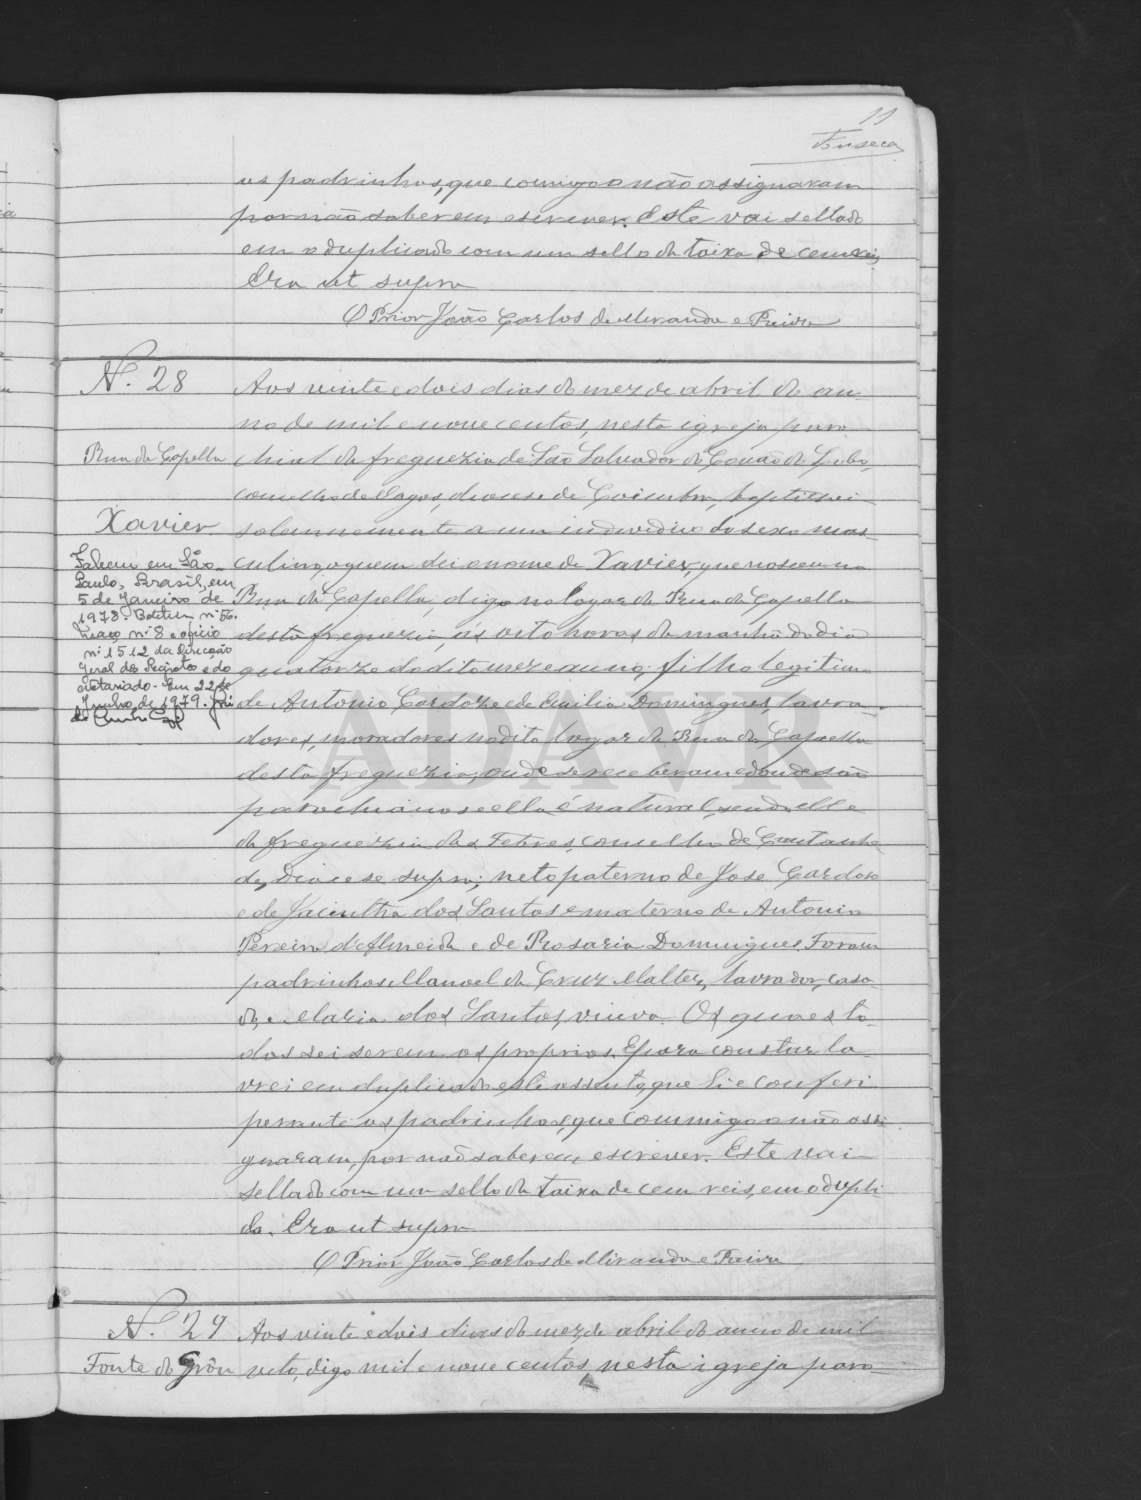 11
Fonseca
os padrinhos, que comigo o não assignaram
por não saberem escrever. Este vai sellado
em o duplicado com um sello da taixa de cem reis,
Era ut supra
O Prior João Carlos de Miranda e Freire
N. 28
Aos vinte e dois dias do mez de abril do an-
no de mil e nove centos, nesta igreja paro-
Rua da Capella
chial da freguezia de São Salvador do Covão do Lobo,
concelho de Vagos, diocese de Coimbra, baptizei
Xavier
solemnemente a um individuo do sexo mas-
culino, a quem dei o nome de Xavier, que nasceu na
Rua da Capella, digo no logar da Rua da Capella
desta freguezia, ás oito horas da manhã do dia
quatorze do dito mez e anno; filho legitimo
de Antonio Cardozo e de Emilia Domingues, lavra-
dores, moradores no dito logar da Rua da Capella
desta freguezia, onde se receberam e donde são
parochianos e ella é natural, sendo elle
da freguezia das Febres, concelho de Cantanhe-
de, Diocese supra; neto paterno de José Cardoso
e de Jacintha dos Santos e materno de Antonio
Pereira d'Almeida e de Rosaria Domingues. Foram
padrinhos Manoel da Cruz Maltez, lavrador, casa-
do, e Maria dos Santos, viuva. Os quaes to-
dos sei serem os proprios. E para constar la-
vrei em duplicado este assento, que li e conferi
perante os padrinhos, que commigo o não assi-
gnaram, por não saberem escrever. Este vai
sellado com um sello da taixa de cem reis, em o dupli-
do. Era ut supra
O Prior João Carlos de Miranda e Freire
Faleceu em São
Paulo, Brasil, em
5 de Janeiro de
1978. Boletim nº 56.
Maço nº 8 e oficio
nº 1512 da Direcção
Geral dos Registos e do
Notariado. Em 22 de
Junho de 1979.
ADAVR
N. 29
Aos vinte e dois dias do mez de abril do anno de mil
Fonte do Grou
oito, digo mil e nove centos, nesta igreja paro-